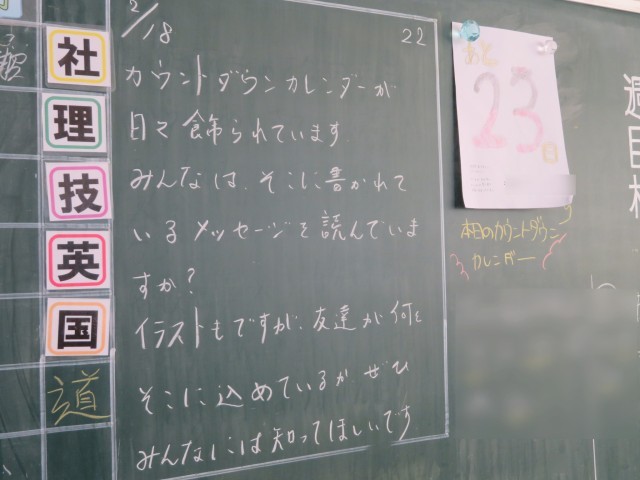 2/18
22
カウントダウンカレンダーが
日々飾られています.
みんなは、そこに書かれて
いるメッセージを読んでいま
すか?
イラストもですが、友達が何を
そこに込めているかぜひ
みんなには知ってほしいです
社
理
技
英
国
道
あと
23
本日のカウントダウン
カレンダー
週目標